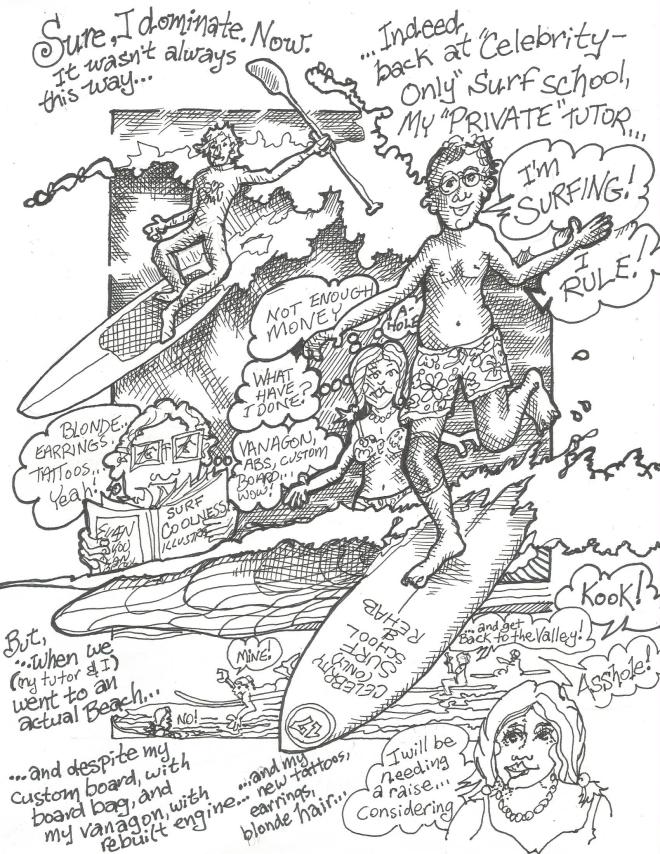 Sure, I dominate. Now.
It wasn't always
this way...
...Indeed
back at "Celebrity-
Only" Surf school,
My "PRIVATE" tutor...
I'M
SURFING!
I
RULE!
NOT ENOUGH
MONEY
A-
HOLE
WHAT
HAVE
I DONE?
VANAGON,
ABS, CUSTOM
BOARD...
WOW!...
BLONDE..
EARRINGS..
TATTOOS...
Yeah!
SURF
COOLNESS!
ILLUSTRATED
EVEN
YOU
CAN
LULU
CELEBRITY
ONLY
SURF
SCHOOL
&
REHAB
Kook!
...and get
Back to the Valley!
Asshole!
MINE!
NO!
But,
...when we
(my tutor & I)
went to an
actual Beach...
...and despite my
custom board, with
board bag, and
my vanagon, with
rebuilt engine...
...and my
new tattoos,
earrings,
blonde hair...
I will be
needing
a raise...
Considering